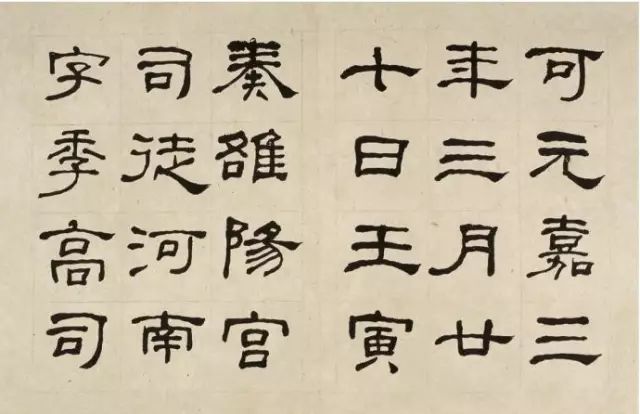 可元嘉三
年三月廿
七日壬寅
奏雒陽宮
司徒河南
字季高司